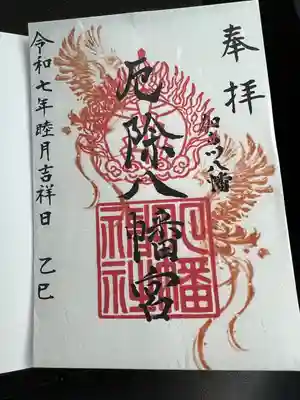 奉拝
八幡
厄除八幡宮
令和七年睦月吉祥日 乙巳